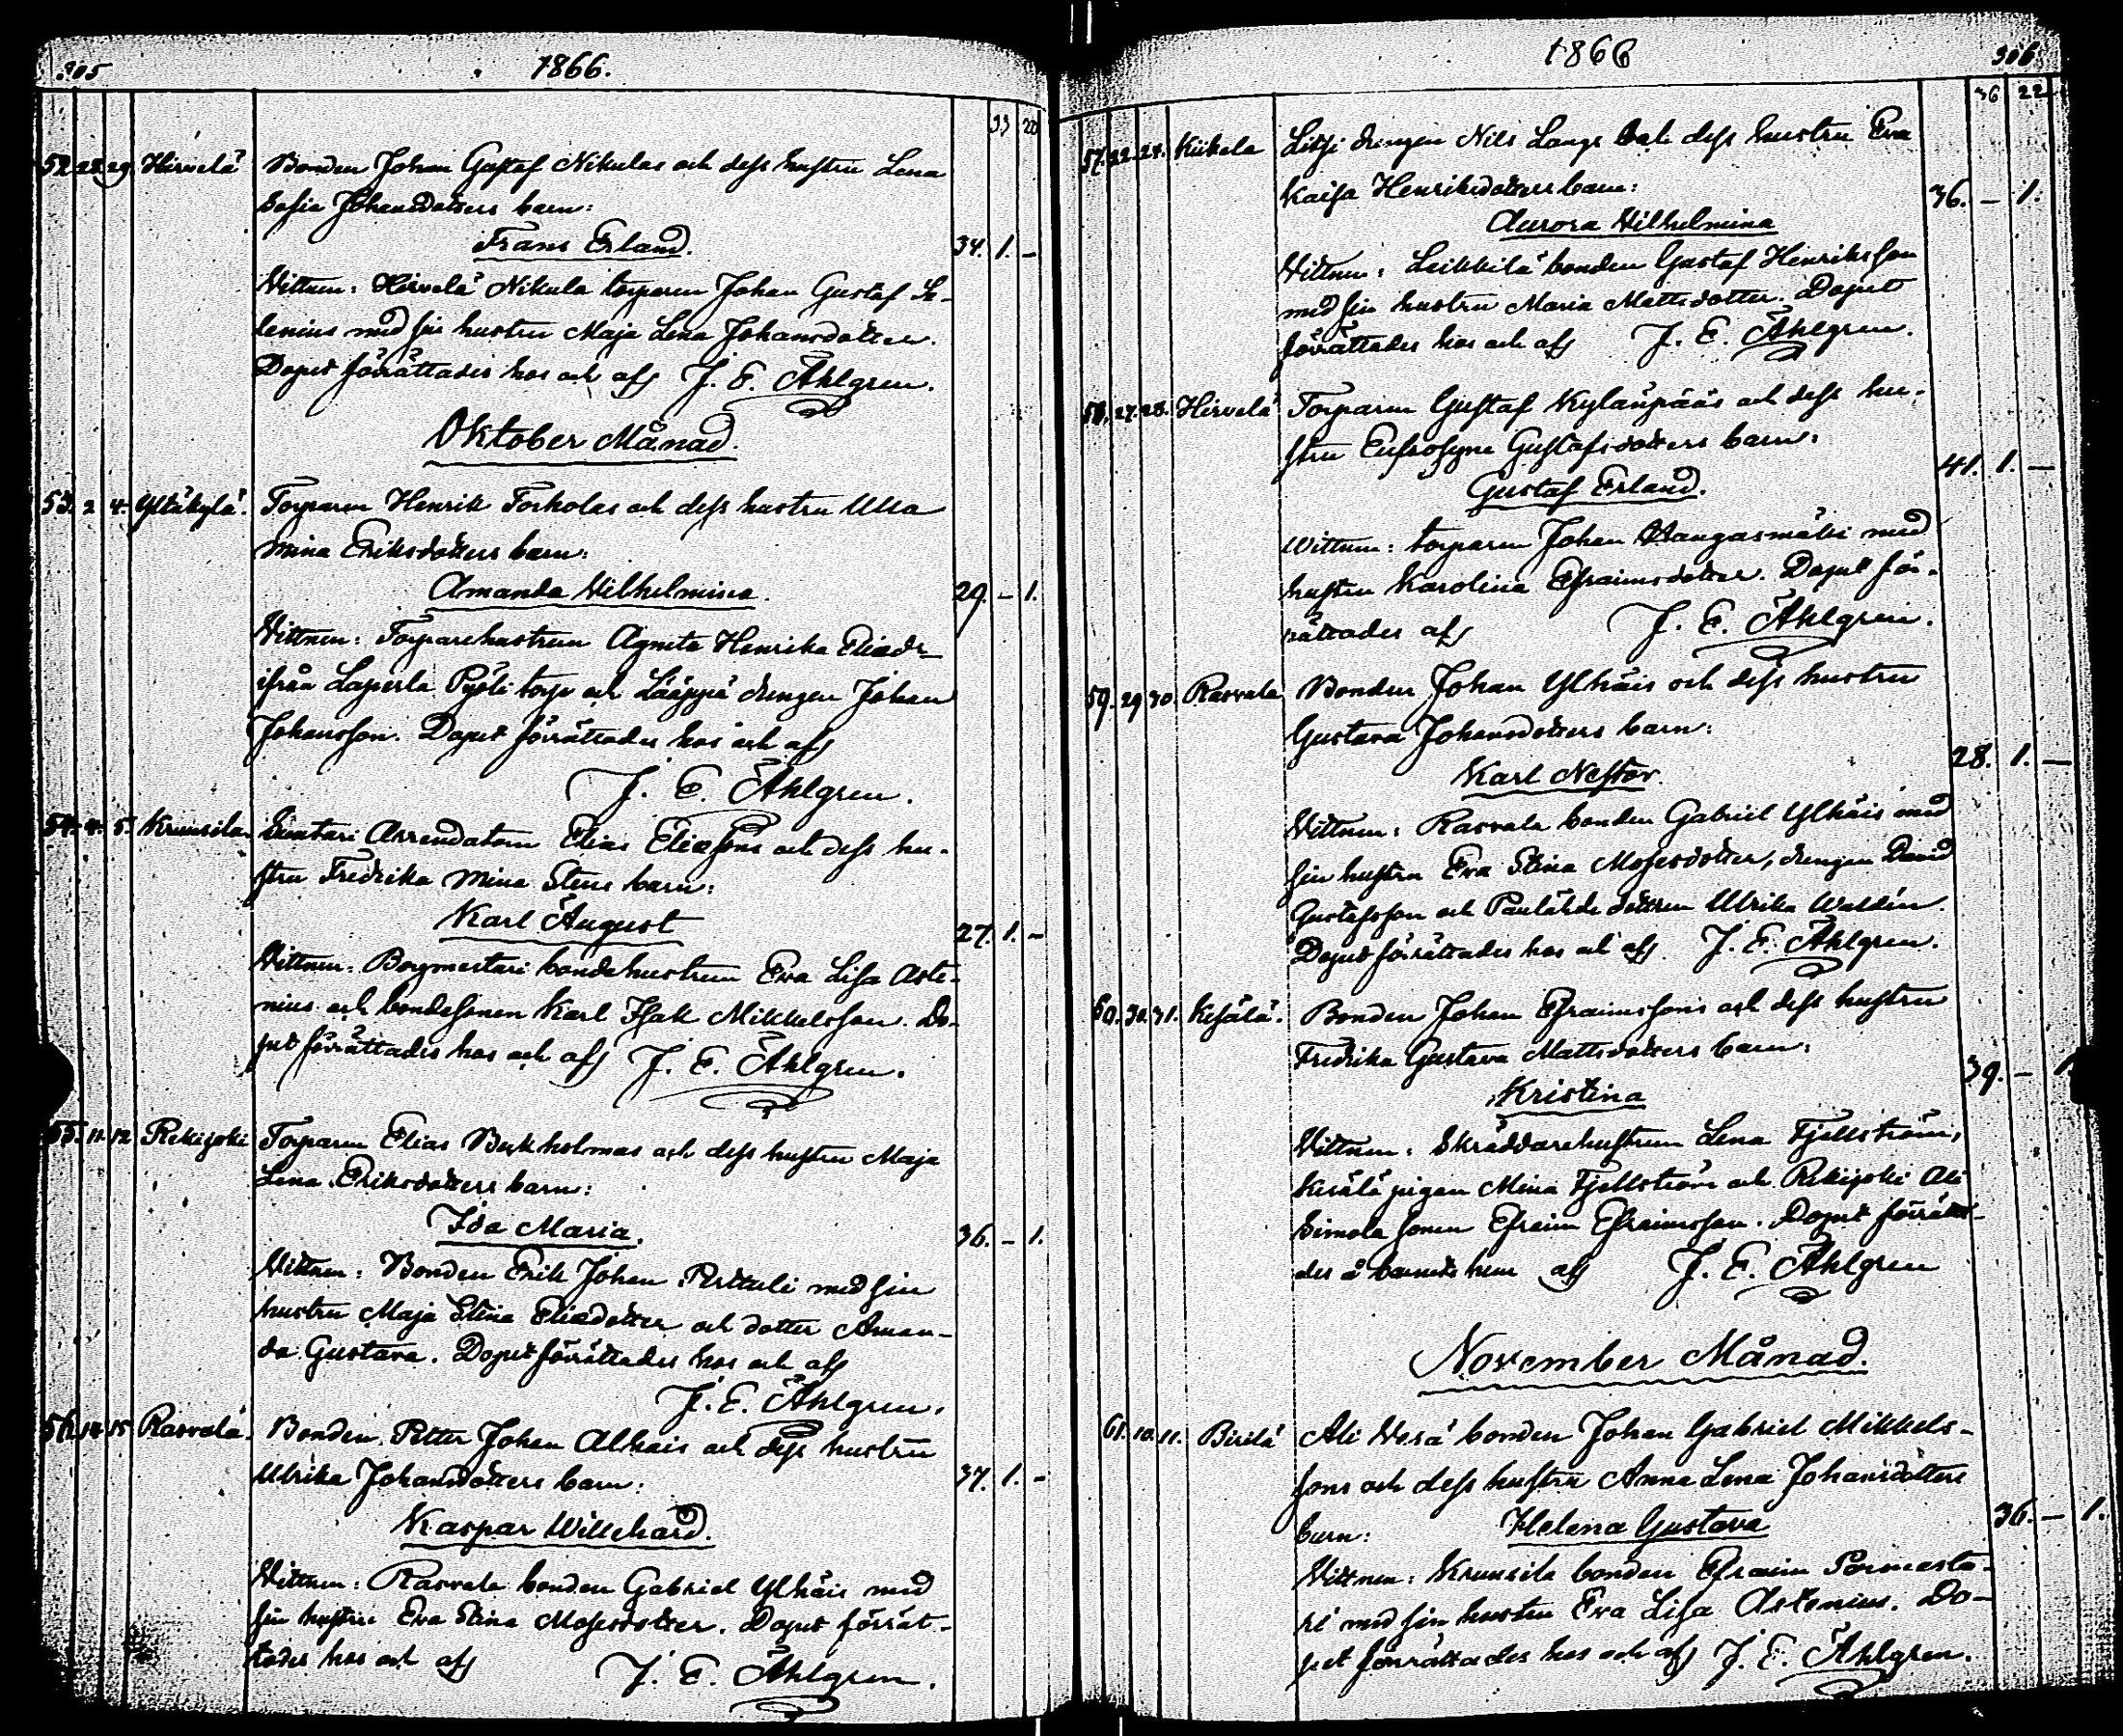 305 1866.
33 20
52. 28. 29. Hirvelä Bonden Johan Gustaf Nikulas och dess hustru Lena
Sofia Johansdotters barn:
Frans Erland. 34. 1. -
Vittnen: Hirvelä Nikula torparen Johan Gustaf Se-
lenius med sin hustru Maja Lena Johansdotter.
Dopet förrättades hos och af J. E. Åhlgren.
Oktober Månad.
53. 2 4. Yltäkylä. Torparen Henrik Forholas och dess hustru Ulla
Mina Eriksdotters barn:
Amanda Vilhelmina. 29. - 1.
Vittnen: Torparehustrun Agneta Henrika Eliædr
ifrån Laperla Pyöli torp och Lääppä drengen Johan
Johansson. Dopet förrättades hos och af
J. E. Åhlgren.
54. 4. 5. Kruusila Arrendatorn Elias Eliæsons och dess hu-
stru Fredrika Mina Stens barn:
Karl August 27. 1. -
Vittnen: Borgmestari bondehustrun Eva Lisa Aste-
nius och bondesonen Karl Isak Mikkelsson. Do-
pet förrättades hos och af J. E. Åhlgren.
55. 11. 12. Rekijoki Torparen Elias Barkholmas och dess hustru Maja
Lena Eriksdotters barn:
Ida Maria. 36. - 1.
Vittnen: Bonden Erik Johan Perttuli med sin
hustru Maja Stina Eliædotter och dotter Aman-
da Gustava. Dopet förrättades hos och af
J. E. Åhlgren.
56. 14 15 Rasvala. Bonden Petter Johan Alhais och dess hustru
Ulrika Johansdotters barn: 37. 1. -
Kaspar Willehard.
Vittnen: Rasvala bonden Gabriel Ylhäis med
sin hustru Eva Stina Mosesdotter. Dopet förrät-
tades hos och af J. E. Åhlgren.
1866 306
36 22
57. 22. 24. Kiikala drengen Nils Langs och dess hustru Eva
Kaisa Henriksdotters barn: 36. - 1.
Aurora Vilhelmina
Vittnen: Leikkilä bonden Gustaf Henriksson
med sin hustru Maria Mattsdotter. Dopet
förrättades hos och af J. E. Åhlgren.
58. 27. 28. Hirvelä Torparen Gustaf Kylänpääs och dess hu-
stru Eufrosyne Gustafsdotters barn: 41. 1. -
Gustaf Erland.
Wittnen: torparen Johan Kangasmäki med
hustru Karolina Efraimsdotter. Dopet för-
rättades af J. E. Åhlgren.
59. 29 30. Rasvala Bonden Johan Ylhäis och dess hustru
Gustava Johansdotters barn: 28. 1. -
Karl Nestor.
Vittnen: Rasvala bonden Gabriel Ylhäis med
sin hustru Eva Stina Mosesdotter, drengen David
Gustafsson och dottren Ulrika Waldén.
Dopet förrättades hos och af J. E. Åhlgren.
60. 30. 31. Kesälä. Bonden Johan Efraimssons och dess hustru
Fredrika Gustava Mattsdotters barn: 39. - 1.
Kristina
Vittnen: Skräddarehustrun Lena Fjellström,
Kesälä pigan Mina Fjellström och Rekijoki Ali
Simola sonen Efraim Efraimsson. Dopet förrätta-
des å barnets hem af J. E. Åhlgren
November Månad.
61. 10. 11. Pirilä Ali Vesä bonden Johan Gabriel Mikkels-
sons och dess hustru Anna Lena Johansdotters
barn: Helena Gustava 36. - 1.
Vittnen: Kruusila bonden Efraim Pormesta-
ri med sin hustru Eva Lisa Astenius. Do-
pet förrättades hos och af J. E. Åhlgren.